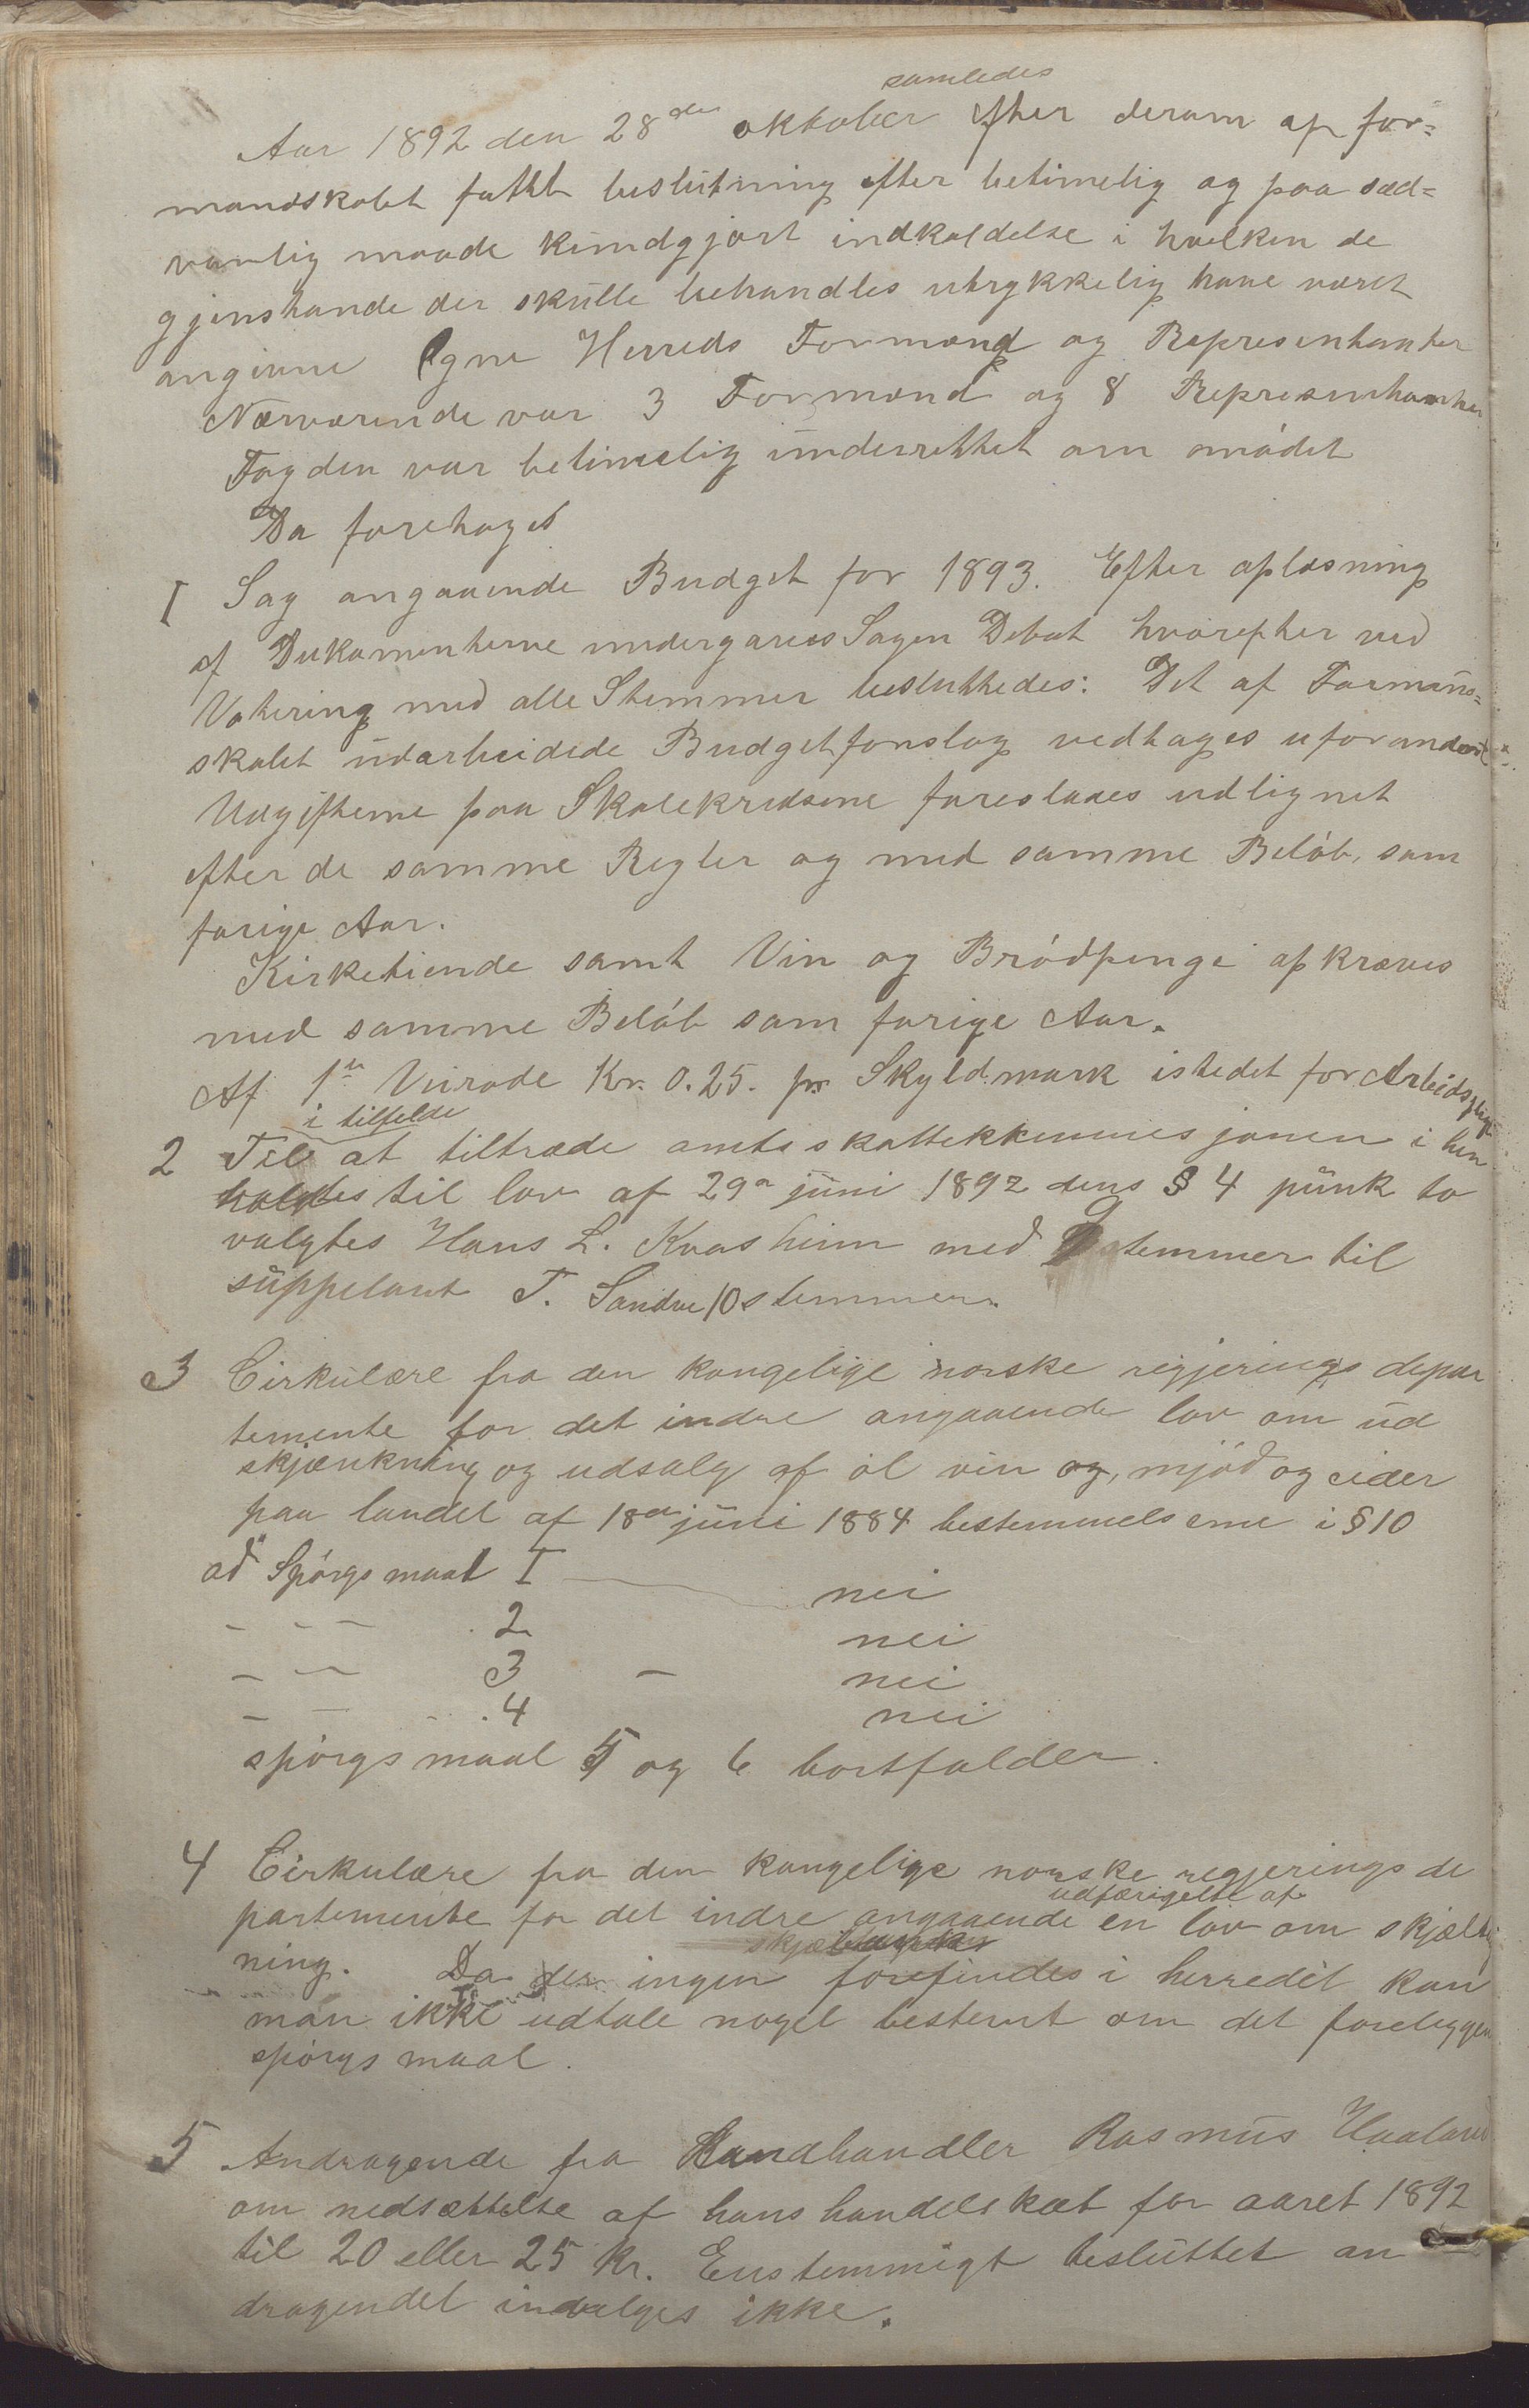 samledes
Aar 1892 den 28de oktober efter derom af for=
mandskabet fattet beslutning efter betimelig og paa sæd=
vanlig maade kundgjort indkaldelse i hvilken de
gjenstande der skulle behandles utrykkelig have været
angivne Ogne Herreds Formænd og Representanter
Nærværende var 3 Formænd og 8 Representanter
Fogden var betimelig underrettet om mødet
Da foretoges
I Sag angaaende Budget for 1893. Efter oplæsning
af Dokumenterne undergaves Sagen Debat hvorefter ved
Votering med alle Stemmer besluttedes: Det af Formans=
skabet udarbeidede Budgetforslag vedtages uforandret.
Udgifterne paa Skolekredsene foreslaaes udlignet
efter de samme Regler og med samme Beløb, som
forige Aar.
Kirketiende samt Vin og Brødpenge afkræves
med samme Beløb som forige Aar.
Af 1ste Veirode Kr. 0.25. pr Skyldmark istedet for Arbeidspligt
i tilfelde
2 Til at tiltræde amtsskattekkommisjonen i hen
holdtes til lov af 29de juni 1892 dens § 4 punk to
valgtes Hans L. Kvasheim med 9 stemmer til
suppelant T. Sandve 10 stemmer.
3 Cirkulære fra den kongelige norske regjerings depar
temente for det indre angaaende lov om ud
skjænkning og udsalg af øl vin og, mjød og cider
paa landet af 18de juni 1884 bestemmelserne i § 10
ad Spørgsmaal I nei
- - - 2 nei
- - 3 - nei
- - 4 nei
spørgsmaal 5 og 6 bortfalder.
4 Cirkulære fra den kongelige norske regjerings de
udfærigelse af
partemente for det indre angaaende en lov om skjælts
ning. Da der ingen forefindes i herredet kan
man ikke udtale noget bestemt om det foreliggen
spørgsmaal.
5 Andragende fra Landhandler Rasmus Haaland
om nedsættelse af hans handelskat for aaret 1892
til 20 eller 25 Kr. Enstemmigt besluttet an
dragendet indvilges ikke.